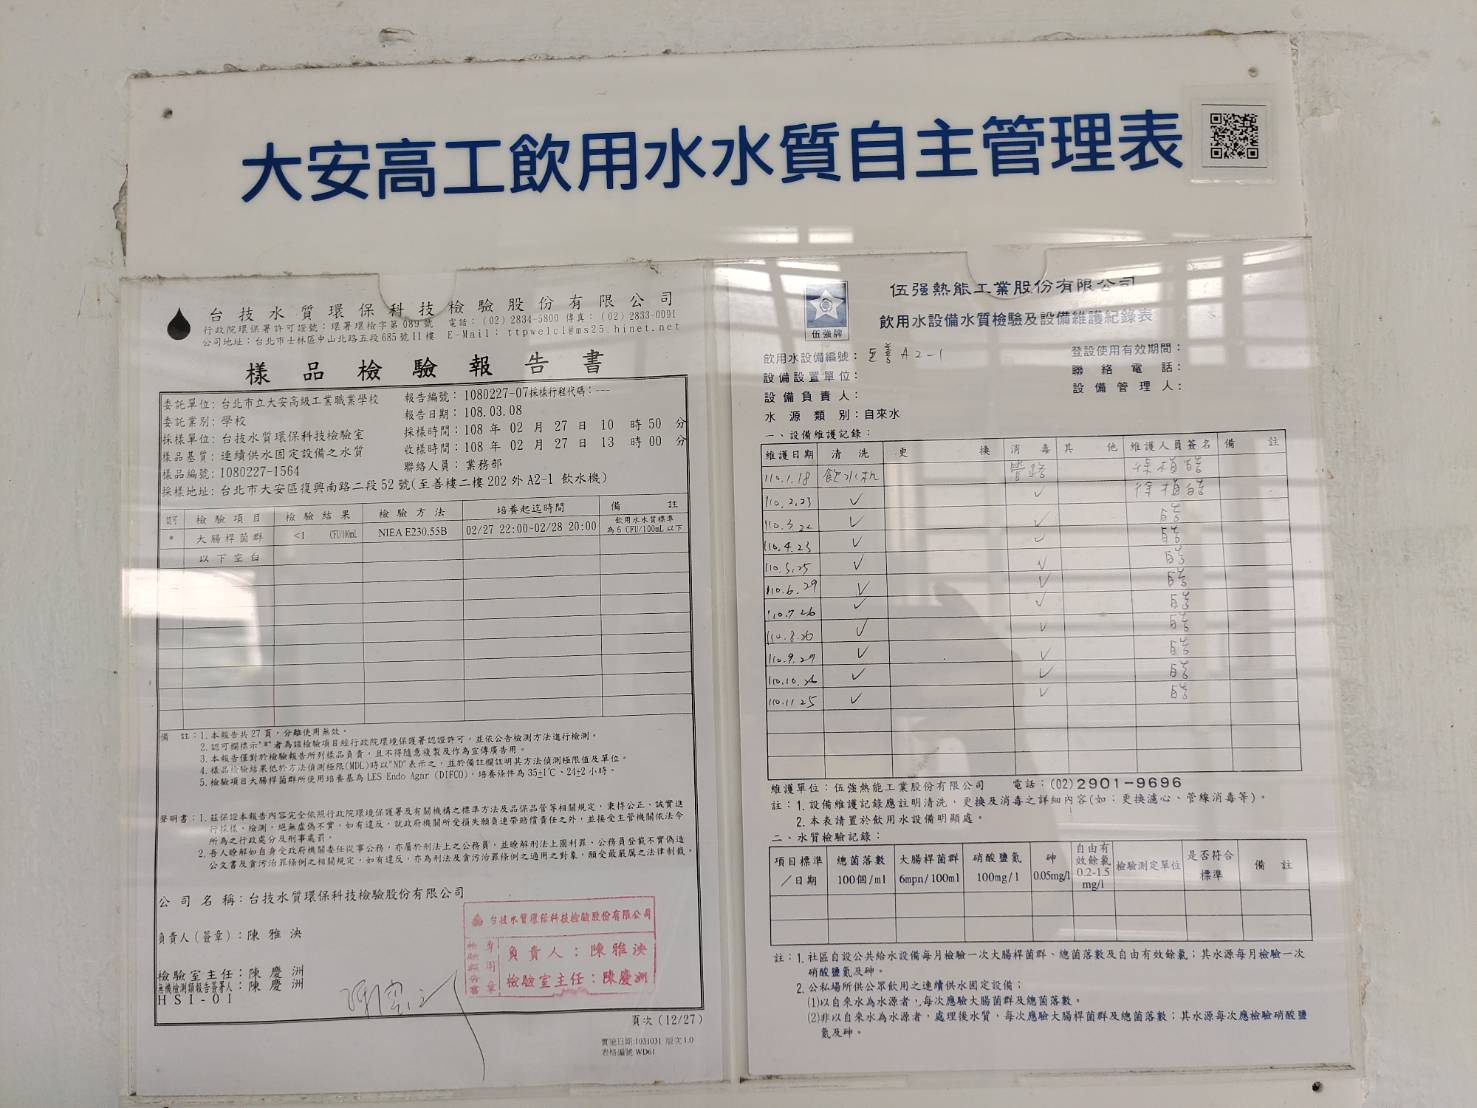 大安高工飲用水水質自主管理表
台技水質環保科技檢驗股份有限公司
行政院環保署許可證號：環署環檢字第089號 電話：(02) 2834-5800 傳真：(02) 2833-0091
公司地址：台北市士林區中山北路五段685號11樓 E-Mail：ttpwelcl@ms25.hinet.net
樣品檢驗報告書
委託單位：台北市立大安高級工業職業學校 報告編號：1080227-07採樣行程代碼：---
委託業別：學校 報告日期：108.03.08
採樣單位：台技水質環保科技檢驗室 採樣時間：108 年 02 月 27 日 10 時 50 分
樣品基質：連續供水固定設備之水質 收樣時間：108 年 02 月 27 日 13 時 00 分
樣品編號：1080227-1564 聯絡人員：業務部
採樣地址：台北市大安區復興南路二段52號(至善樓二樓202外A2-1 飲水機)
檢驗項目 檢驗結果 檢驗方法 培養起迄時間 備註
* 大腸桿菌群 <1 CFU/100mL NIEA E230.55B 02/27 22:00-02/28 20:00 飲用水水質標準為6 CFU/100mL以下
以下空白
備註：1.本報告共27頁，分離使用無效。
2.認可欄標示"*"者為該檢驗項目經行政院環境保護署認證許可，並依公告檢測方法進行檢測。
3.本報告僅對於檢驗報告所列樣品負責，且不得隨意複製及作為宣傳廣告用。
4.樣品檢驗結果低於方法偵測極限(MDL)時以"ND"表示之，並於備註欄註明其方法偵測極限值及單位。
5.檢驗項目大腸桿菌群所使用培養基為 LES Endo Agar (DIFCO)，培養條件為 35±1℃、24±2小時。
聲明書：1.茲保證本報告內容完全依照行政院環境保護署及有關機構之標準方法及品保品管等相關規定，秉持公正、誠實進
行採樣、檢測，絕無虛偽不實，如有違反，就政府機關所受損失願負連帶賠償責任之外，並接受主管機關依法令
所為之行政處分及刑事處罰。
2.吾人瞭解如自身受政府機關委任從事公務，亦屬於刑法上之公務員，並瞭解刑法上圖利罪、公務員登載不實偽造
公文書及貪污治罪條例之相關規定，如有違反，亦為刑法及貪污治罪條例之適用之對象，願受最嚴厲之法律制裁。
公司名稱：台技水質環保科技檢驗股份有限公司
負責人(簽章)：陳雅泱
檢驗室主任：陳慶洲
無機檢測類報告簽署人：陳慶洲
HSI-01
台技水質環保科技檢驗股份有限公司
負責人：陳雅泱
檢驗室主任：陳慶洲
頁次 (12/27)
實施日期:1031031 版次1.0
表格編號 WD61
伍強牌
伍强熱能工業股份有限公司
飲用水設備水質檢驗及設備維護紀錄表
飲用水設備編號：至善A2-1 登設使用有效期間：
設備設置單位： 聯絡電話：
設備負責人： 設備管理人：
水源類別：自來水
一、設備維護記錄：
維護日期 清洗 更換 消毒 其他 維護人員簽名 備註
110.1.18 飲水机 管路
110.2.23 ✓ ✓
110.3.22 ✓ ✓
110.4.23 ✓ ✓
110.5.25 ✓ ✓
110.6.29 ✓ ✓
110.7.26 ✓ ✓
110.8.26 ✓ ✓
110.9.27 ✓ ✓
110.10.26 ✓ ✓
110.11.25 ✓ ✓
維護單位：伍強熱能工業股份有限公司 電話：(02)2901-9696
註：1.設備維護記錄應註明清洗，更換及消毒之詳細內容(如：更換濾心、管線消毒等)。
2.本表請置於飲用水設備明顯處。
二、水質檢驗記錄：
項目標準／日期 總菌落數 100個/ml 大腸桿菌群 6mpn/100ml 硝酸鹽氮 100mg/l 砷 0.05mg/l 自由有效餘氯 0.2-1.5 mg/l 檢驗測定單位 是否符合標準 備註
註：1.社區自設公共給水設備每月檢驗一次大腸桿菌群、總菌落數及自由有效餘氯；其水源每月檢驗一次
硝酸鹽氮及砷。
2.公私場所供公眾飲用之連續供水固定設備：
(1)以自來水為水源者，每次應驗大腸菌群及總菌落數。
(2)非以自來水為水源者，處理後水質，每次應驗大腸菌群及總菌落數；其水源每次應檢驗硝酸鹽
氮及砷。